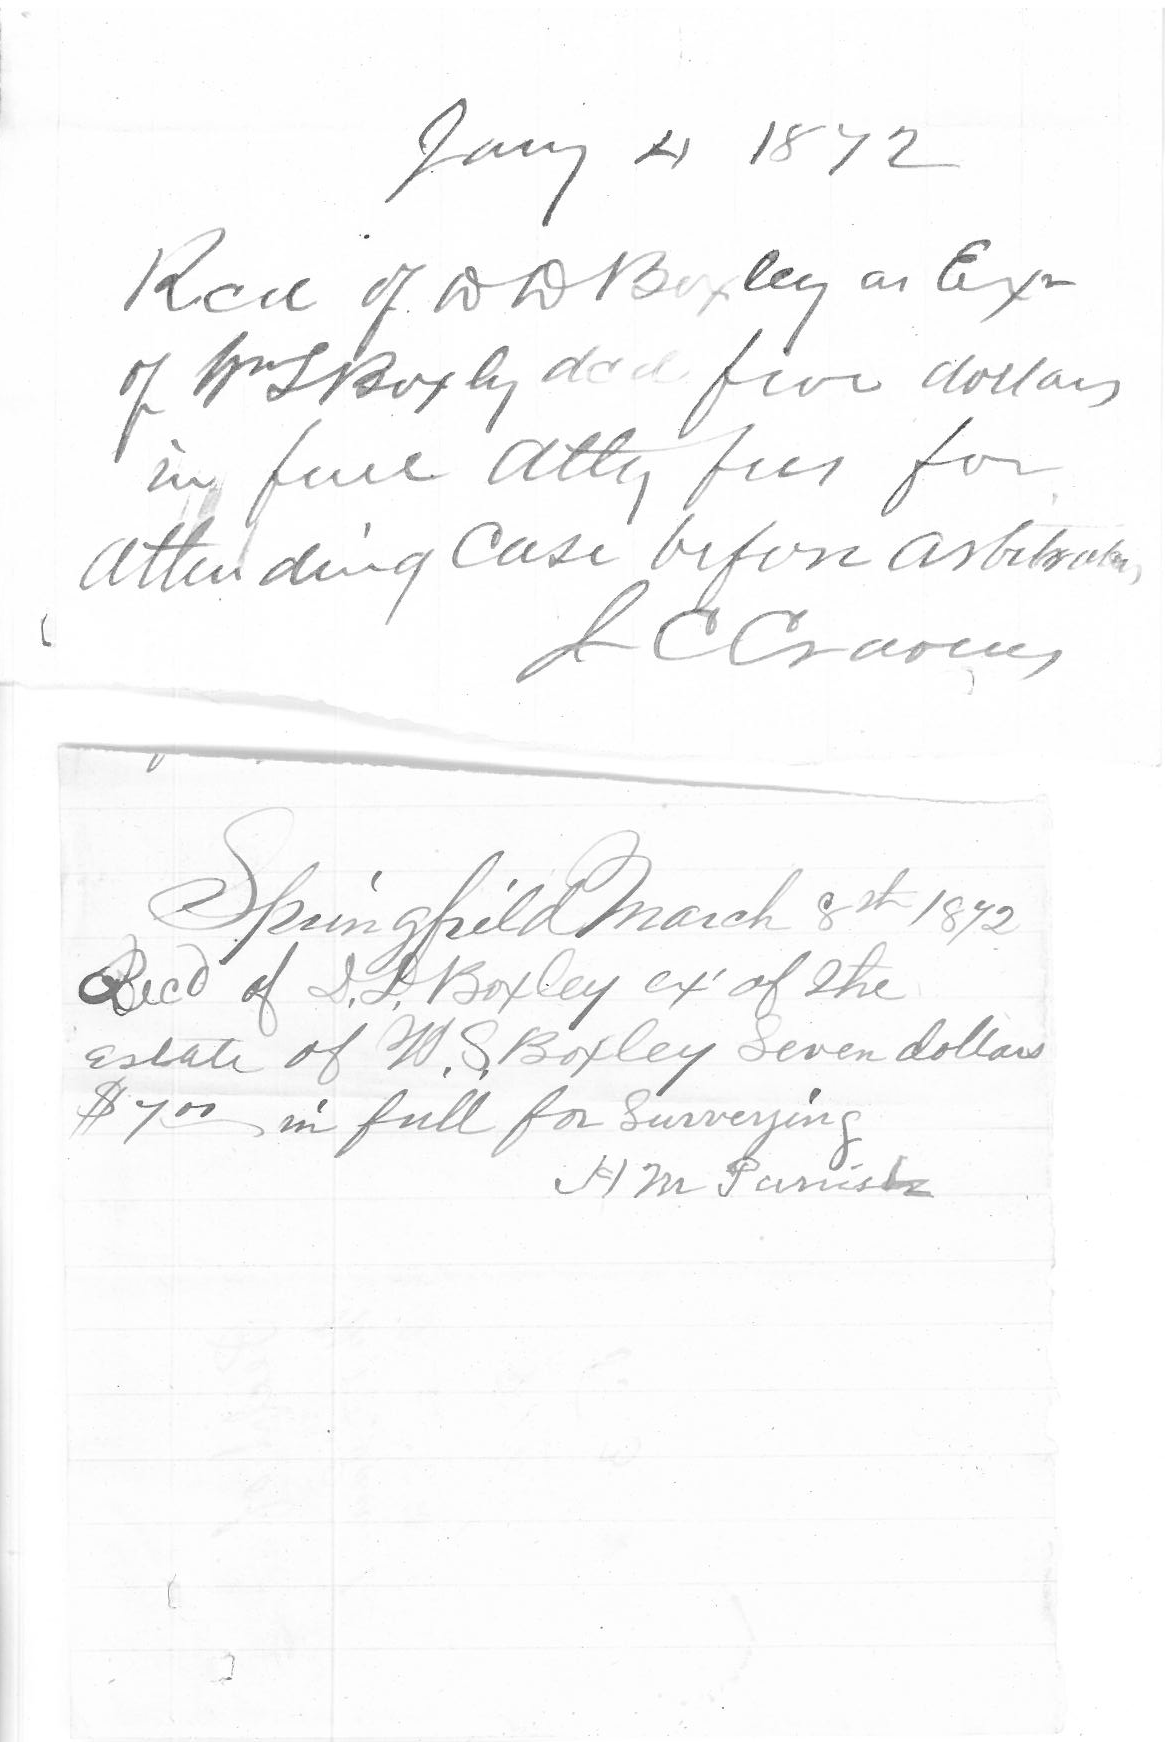 Jany 4 1872
Recd of D D Boxley as Exr
of Wm S Boxley decd five dollars
in full Atty fees for
attending case before arbitrators
J C Cravens
Springfield March 8th 1872
Recd of D.D. Boxley exr of the
estate of W.S. Boxley Seven dollars
$7.00 in full for Surveying
H M Parrish